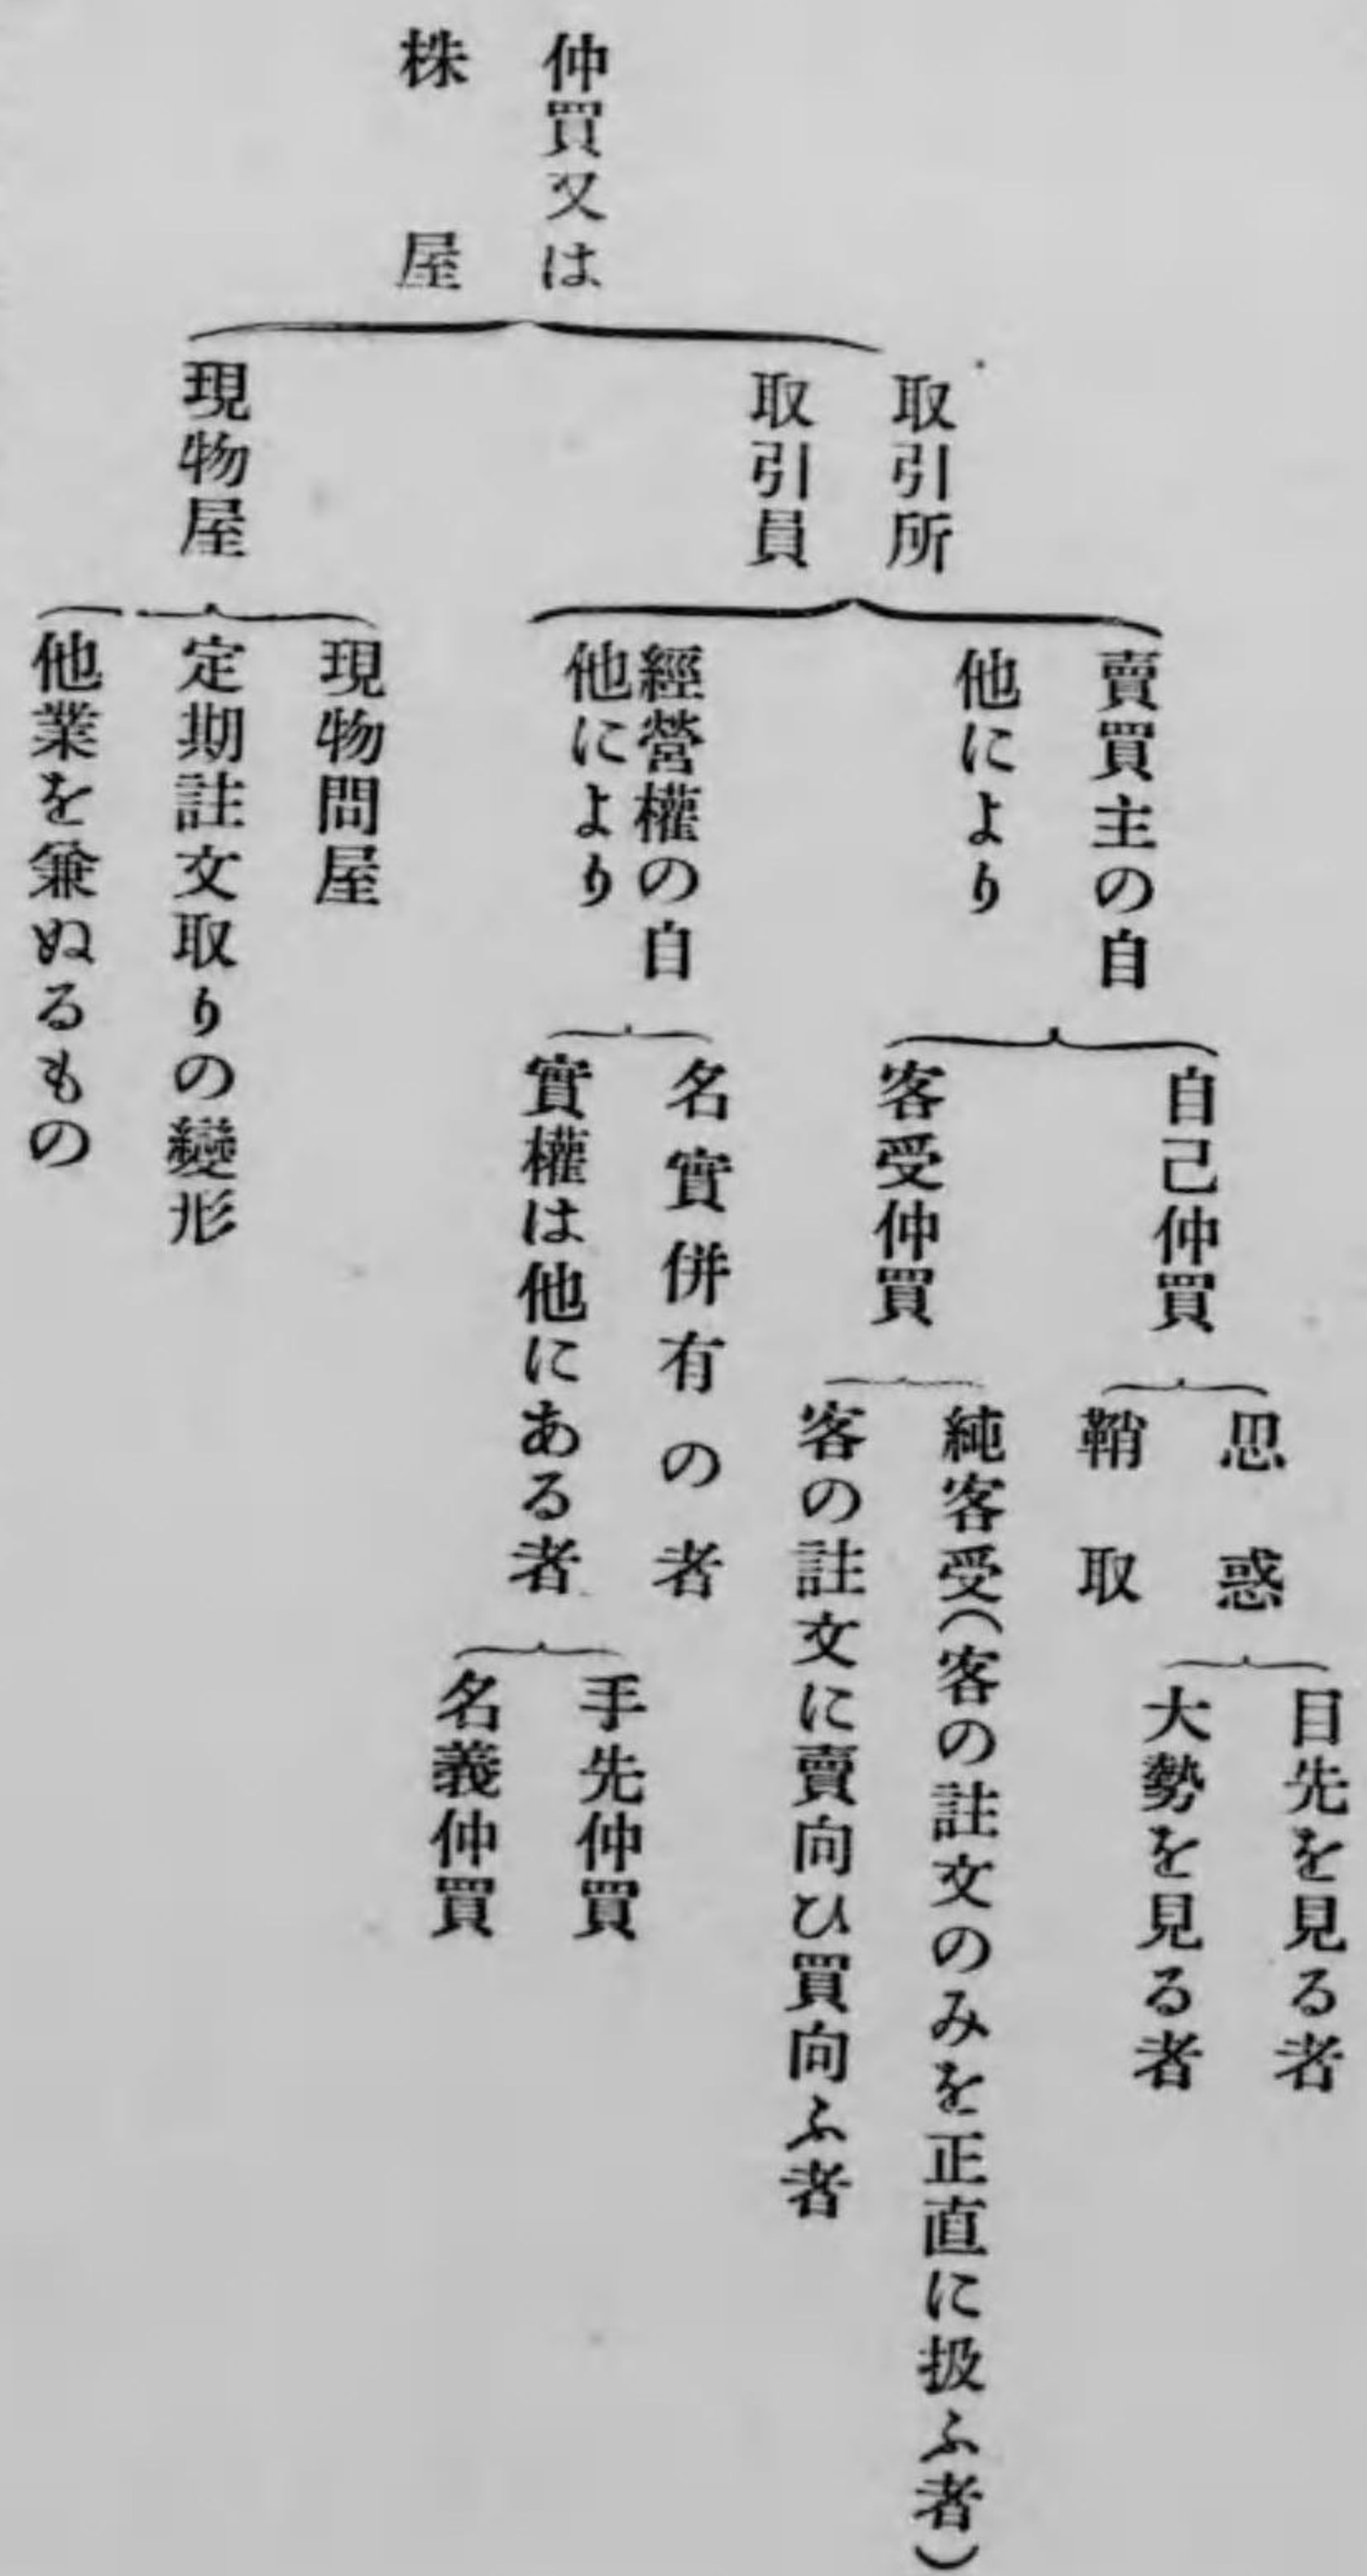 仲買又は
株屋
取引所
取引員
賣買主の自
他により
自己仲買
思惑
目先を見る者
大勢を見る者
鞘取
客受仲買
純客受(客の註文のみを正直に扱ふ者)
客の註文に賣向ひ買向ふ者
經營權の自
他により
名實併有の者
實權は他にある者
手先仲買
名義仲買
現物屋
現物問屋
定期註文取りの變形
他業を兼ぬるもの